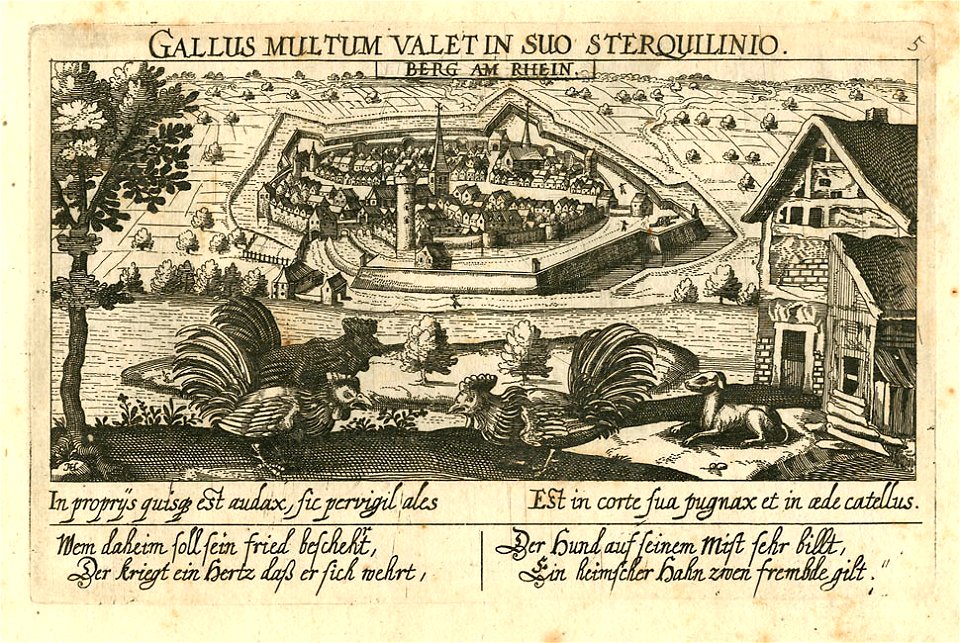 GALLUS MULTUM VALET IN SUO STERQUILINIO.
5
BERG AM RHEIN.
In proprijs quisq; est audax, sic pervigil ales
Est in corte sua pugnax et in æde catellus.
Wem daheim soll sein fried beschehrt,
Der kriegt ein Hertz daß er sich wehrt,
Der Hund auf seinem Mist sehr billt,
Ein heimscher Hahn zwen frembde gilt.